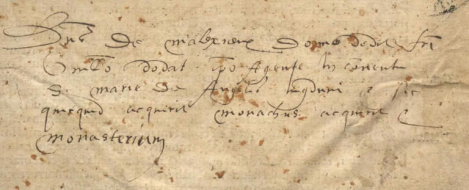 Dns de malexneux domo dedit fri
dodat Agente in convent
s. marie de Angelis Lugduni & sic
quicquid acquerit monachus acquirit
monasterium